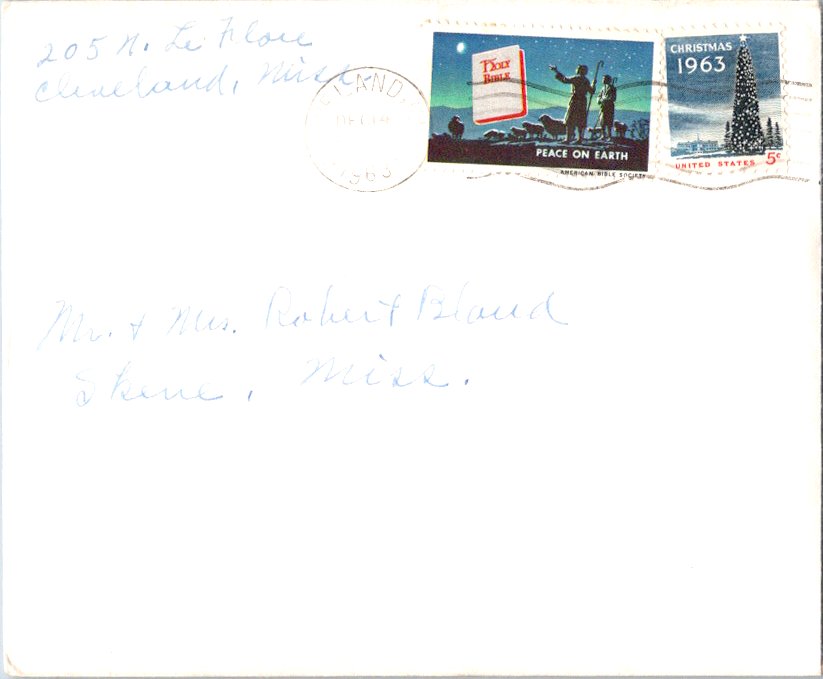 205 N. Le Flore
Cleveland, Miss.
DEC
1963
HOLY
BIBLE
PEACE ON EARTH
AMERICAN BIBLE SOCIETY
CHRISTMAS
1963
UNITED STATES 5¢
Mr. & Mrs. Robert Bland
Skene, Miss.